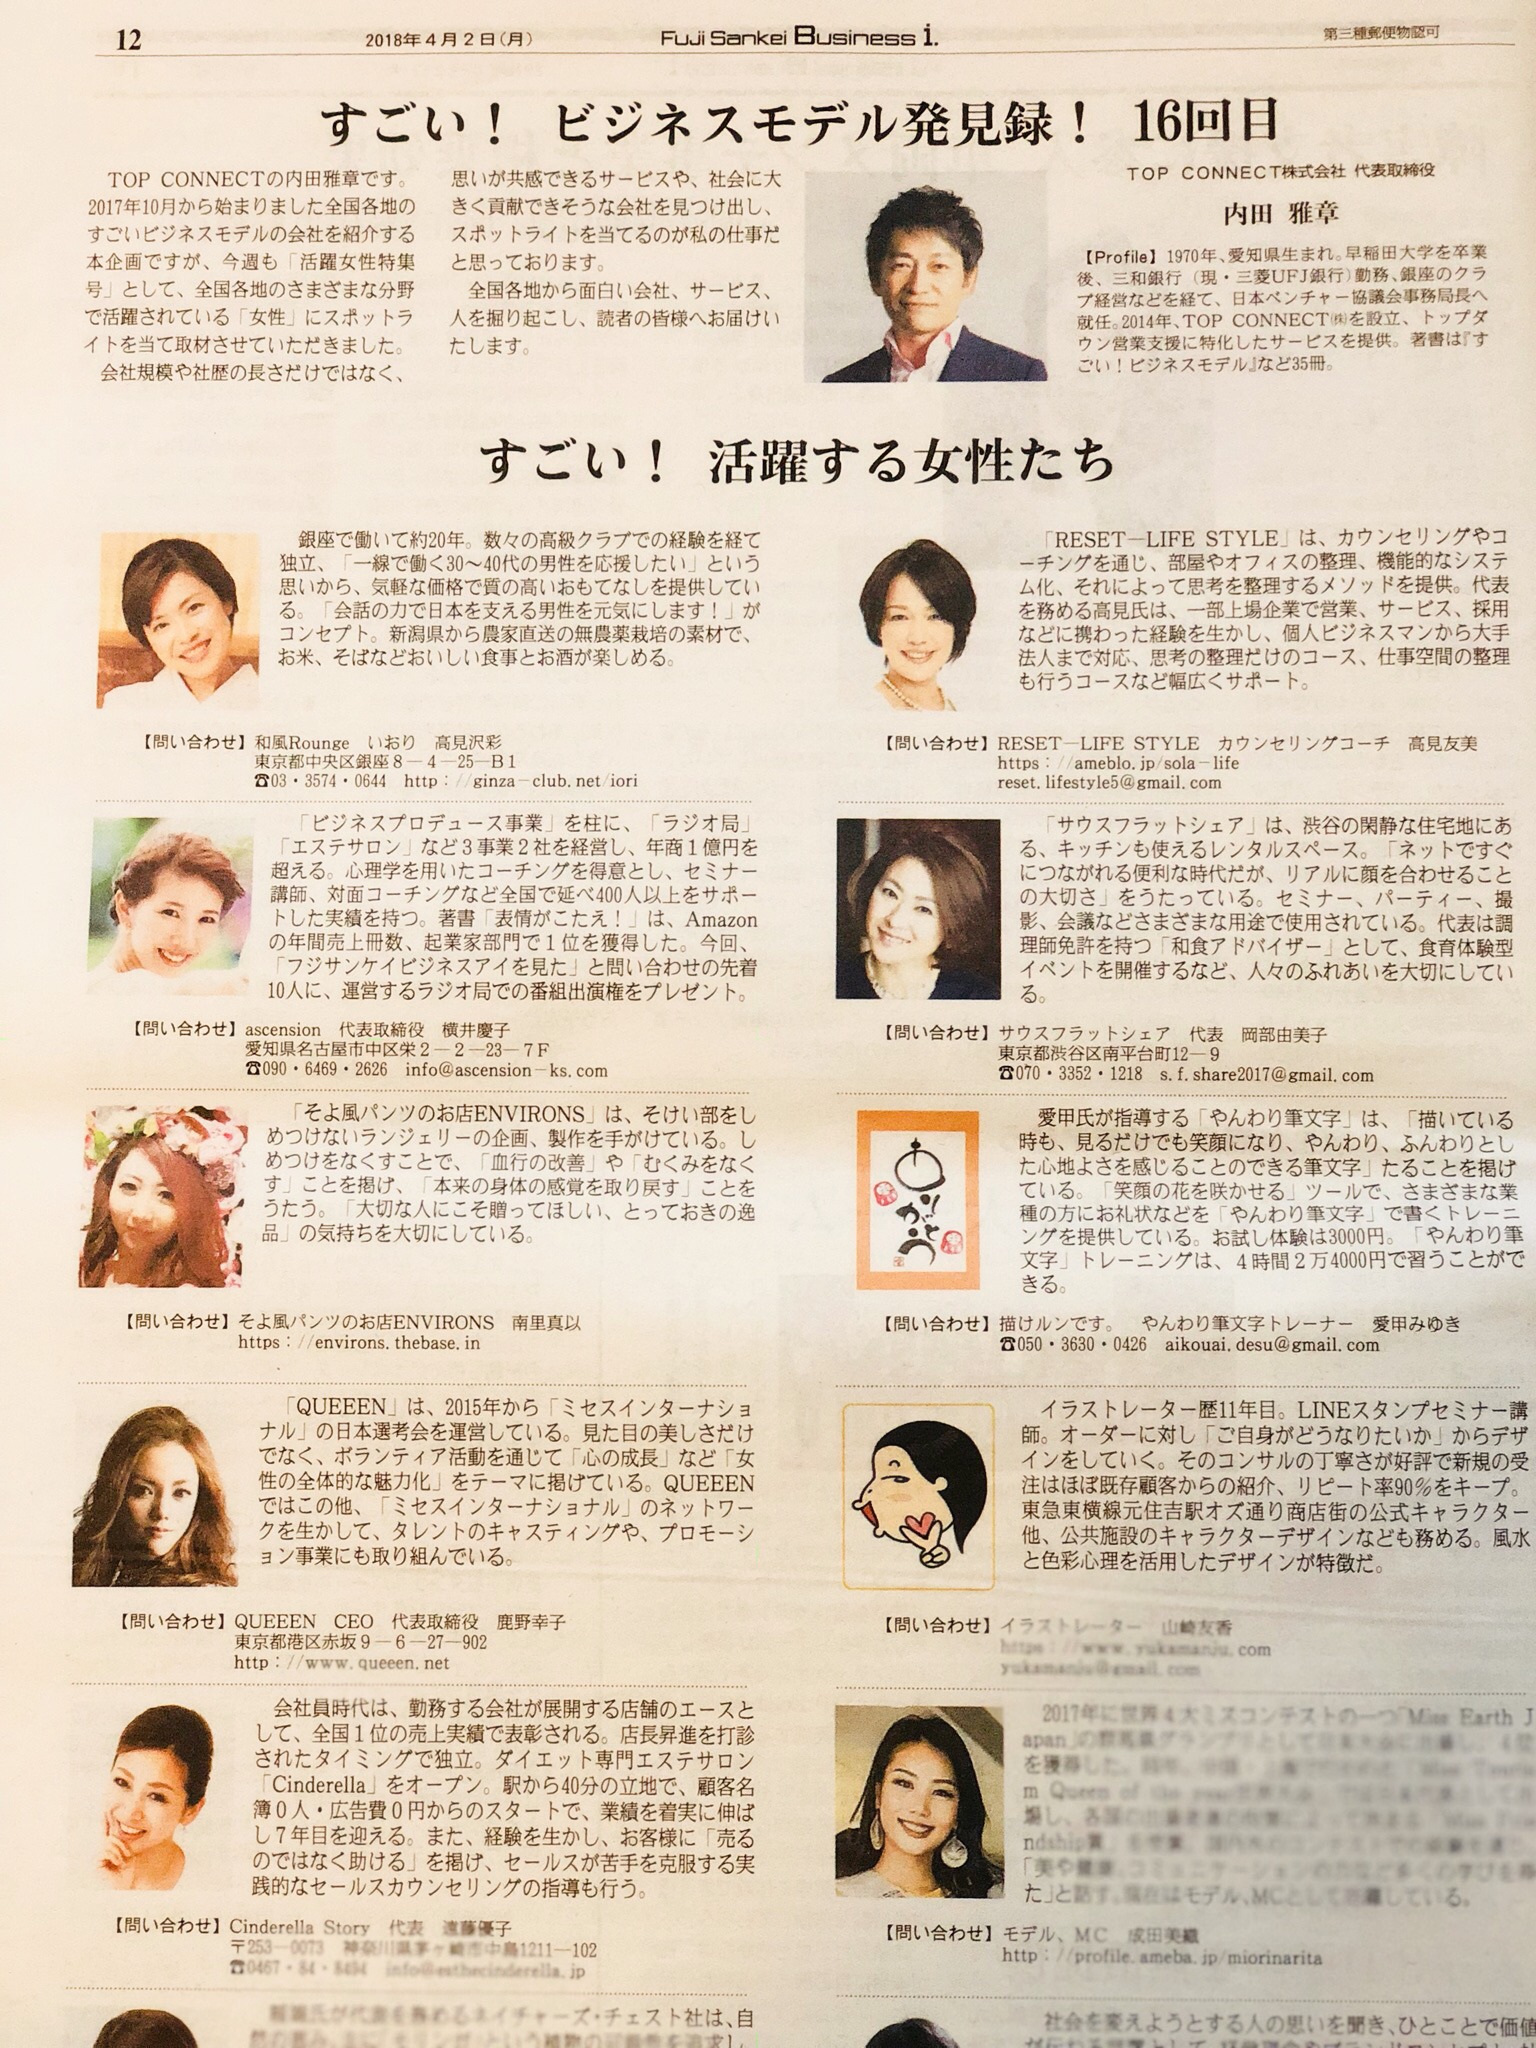 12
2018年4月2日(月)
Fuji Sankei Business i.
第三種郵便物認可
すごい！ ビジネスモデル発見録！ 16回目
TOP CONNECTの内田雅章です。
2017年10月から始まりました全国各地の
すごいビジネスモデルの会社を紹介する
本企画ですが、今週も「活躍女性特集
号」として、全国各地のさまざまな分野
で活躍されている「女性」にスポットラ
イトを当て取材させていただきました。
会社規模や社歴の長さだけではなく、
思いが共感できるサービスや、社会に大
きく貢献できそうな会社を見つけ出し、
スポットライトを当てるのが私の仕事だ
と思っております。
全国各地から面白い会社、サービス、
人を掘り起こし、読者の皆様へお届けい
たします。
TOP CONNECT株式会社 代表取締役
内田 雅章
【Profile】1970年、愛知県生まれ。早稲田大学を卒業
後、三和銀行（現・三菱UFJ銀行）勤務、銀座のクラ
ブ経営などを経て、日本ベンチャー協議会事務局長へ
就任。2014年、TOP CONNECT㈱を設立、トップダ
ウン営業支援に特化したサービスを提供。著書は『す
ごい！ビジネスモデル』など35冊。
すごい！ 活躍する女性たち
銀座で働いて約20年。数々の高級クラブでの経験を経て
独立、「一線で働く30～40代の男性を応援したい」という
思いから、気軽な価格で質の高いおもてなしを提供してい
る。「会話の力で日本を支える男性を元気にします！」が
コンセプト。新潟県から農家直送の無農薬栽培の素材で、
お米、そばなどおいしい食事とお酒が楽しめる。
【問い合わせ】和風Rounge いおり 高見沢彩
東京都中央区銀座8－4－25－B1
☎03・3574・0644 http://ginza-club.net/iori
「ビジネスプロデュース事業」を柱に、「ラジオ局」
「エステサロン」など3事業2社を経営し、年商1億円を
超える。心理学を用いたコーチングを得意とし、セミナー
講師、対面コーチングなど全国で延べ400人以上をサポー
トした実績を持つ。著書「表情がこたえ！」は、Amazon
の年間売上冊数、起業家部門で1位を獲得した。今回、
「フジサンケイビジネスアイを見た」と問い合わせの先着
10人に、運営するラジオ局での番組出演権をプレゼント。
【問い合わせ】ascension 代表取締役 横井慶子
愛知県名古屋市中区栄2－2－23－7F
☎090・6469・2626 info@ascension-ks.com
「そよ風パンツのお店ENVIRONS」は、そけい部をし
めつけないランジェリーの企画、製作を手がけている。し
めつけをなくすことで、「血行の改善」や「むくみをなく
す」ことを掲げ、「本来の身体の感覚を取り戻す」ことを
うたう。「大切な人にこそ贈ってほしい、とっておきの逸
品」の気持ちを大切にしている。
【問い合わせ】そよ風パンツのお店ENVIRONS 南里真以
https://environs.thebase.in
「QUEEEN」は、2015年から「ミセスインターナショ
ナル」の日本選考会を運営している。見た目の美しさだけ
でなく、ボランティア活動を通じて「心の成長」など「女
性の全体的な魅力化」をテーマに掲げている。QUEEEN
ではこの他、「ミセスインターナショナル」のネットワー
クを生かして、タレントのキャスティングや、プロモーシ
ョン事業にも取り組んでいる。
【問い合わせ】QUEEEN CEO 代表取締役 鹿野幸子
東京都港区赤坂9－6－27－902
http://www.queeen.net
会社員時代は、勤務する会社が展開する店舗のエースと
して、全国1位の売上実績で表彰される。店長昇進を打診
されたタイミングで独立。ダイエット専門エステサロン
「Cinderella」をオープン。駅から40分の立地で、顧客名
簿0人・広告費0円からのスタートで、業績を着実に伸ば
し7年目を迎える。また、経験を生かし、お客様に「売る
のではなく助ける」を掲げ、セールスが苦手を克服する実
践的なセールスカウンセリングの指導も行う。
【問い合わせ】Cinderella Story 代表 遠藤優子
〒253－0073 神奈川県茅ヶ崎市中島1211－102
☎0467・84・8494 info@esthecinderella.jp
「RESET－LIFE STYLE」は、カウンセリングやコ
ーチングを通じ、部屋やオフィスの整理、機能的なシステ
ム化、それによって思考を整理するメソッドを提供。代表
を務める高見氏は、一部上場企業で営業、サービス、採用
などに携わった経験を生かし、個人ビジネスマンから大手
法人まで対応、思考の整理だけのコース、仕事空間の整理
も行うコースなど幅広くサポート。
【問い合わせ】RESET－LIFE STYLE カウンセリングコーチ 高見友美
https://ameblo.jp/sola-life
reset.lifestyle5@gmail.com
「サウスフラットシェア」は、渋谷の閑静な住宅地にあ
る、キッチンも使えるレンタルスペース。「ネットですぐ
につながれる便利な時代だが、リアルに顔を合わせること
の大切さ」をうたっている。セミナー、パーティー、撮
影、会議などさまざまな用途で使用されている。代表は調
理師免許を持つ「和食アドバイザー」として、食育体験型
イベントを開催するなど、人々のふれあいを大切にしてい
る。
【問い合わせ】サウスフラットシェア 代表 岡部由美子
東京都渋谷区南平台町12－9
☎070・3352・1218 s.f.share2017@gmail.com
ありがとう
愛甲氏が指導する「やんわり筆文字」は、「描いている
時も、見るだけでも笑顔になり、やんわり、ふんわりとし
た心地よさを感じることのできる筆文字」たることを掲げ
ている。「笑顔の花を咲かせる」ツールで、さまざまな業
種の方にお礼状などを「やんわり筆文字」で書くトレーニ
ングを提供している。お試し体験は3000円。「やんわり筆
文字」トレーニングは、4時間2万4000円で習うことがで
きる。
【問い合わせ】描けルンです。 やんわり筆文字トレーナー 愛甲みゆき
☎050・3630・0426 aikouai.desu@gmail.com
イラストレーター歴11年目。LINEスタンプセミナー講
師。オーダーに対し「ご自身がどうなりたいか」からデザ
インをしていく。そのコンサルの丁寧さが好評で新規の受
注はほぼ既存顧客からの紹介、リピート率90％をキープ。
東急東横線元住吉駅オズ通り商店街の公式キャラクター
他、公共施設のキャラクターデザインなども務める。風水
と色彩心理を活用したデザインが特徴だ。
【問い合わせ】イラストレーター 山崎友香
https://www.yukamanju.com
yukamanju@gmail.com
2017年に世界4大ミスコンテストの一つ「Miss Earth J
apan」の
を獲得した。
m Queen of the year
ndship賞」
「美や健康、コミュニケーション
た」と話す。現在はモデル、MCとして活躍している。
【問い合わせ】モデル、MC 成田美織
http://profile.ameba.jp/miorinarita
ネイチャーズ・チェスト社は、自
社会を変えようとする人の思いを聞き、ひとことで価値